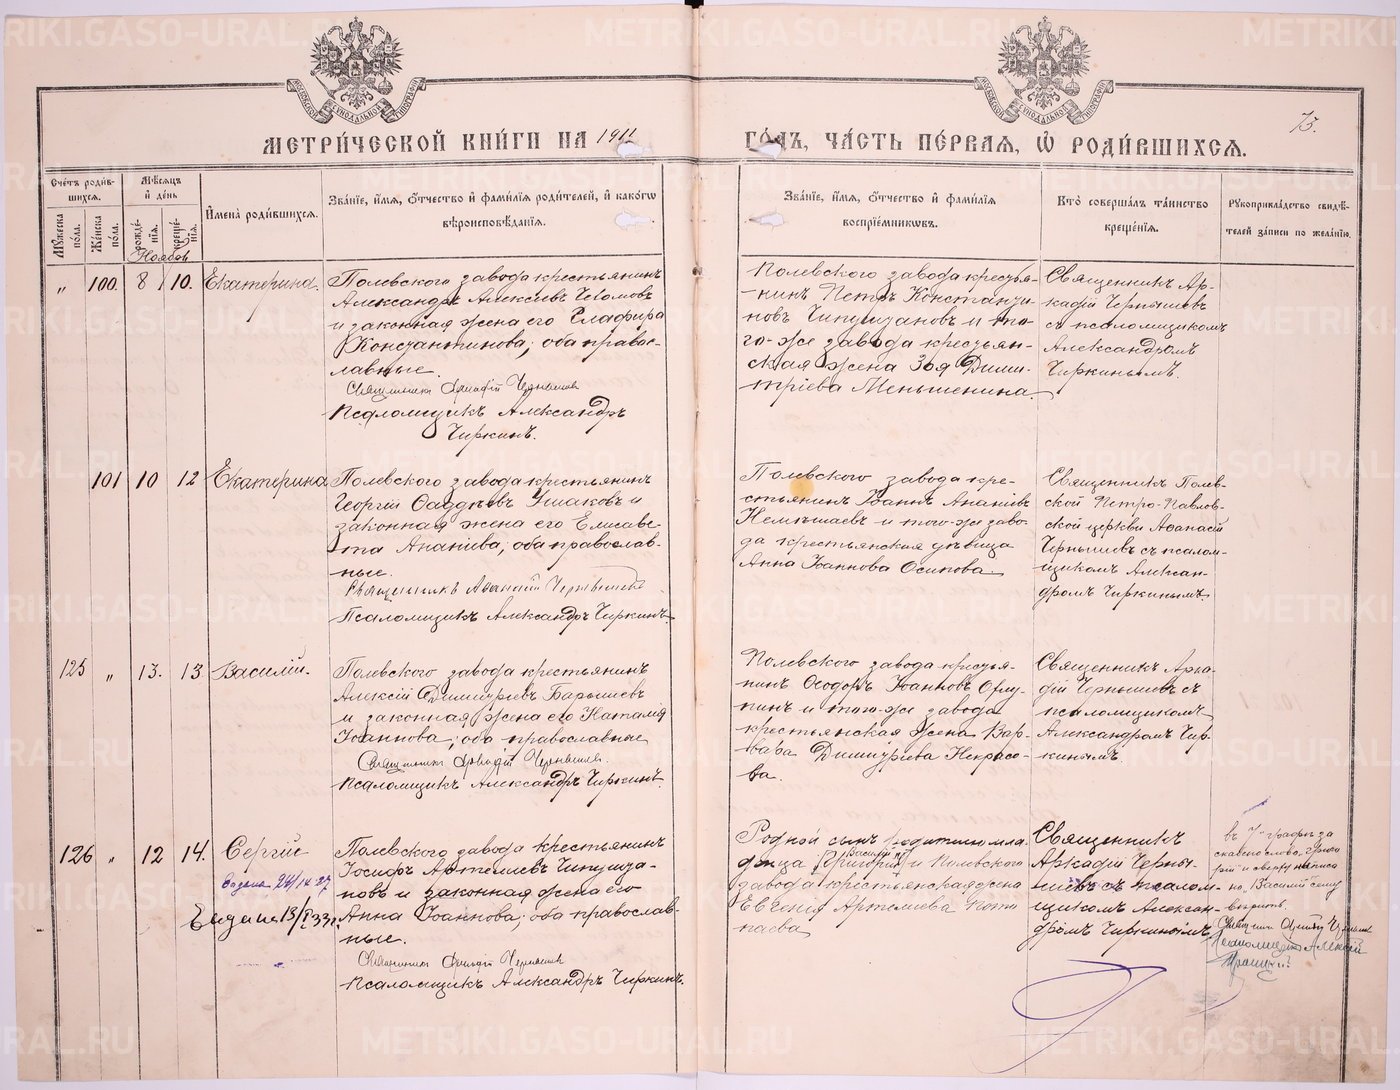 МЕТРИ́ЧЕСКОЙ КНИ́ГИ НА 1911 ГО́ДЪ, ЧА́СТЬ ПЕ́РВАЯ, Ѡ҆ РОДИ́ВШИХСѦ.
75.
Сче́тъ роди́в-
шихсѧ.
Мꙋ́жеска
по́ла.
Же́нска
по́ла.
Мѣ́сѧцъ
и҆ де́нь
рожде́-
нїѧ.
креще́-
нїѧ.
Ноябрь
И҆мена̀ роди́вшихсѧ.
Зва́нїе, и҆́мѧ, ѻ҆́тчество и҆ фами́лїѧ роди́телей, и҆ како́гѡ
вѣ́роисповѣ́данїѧ.
Зва́нїе, и҆́мѧ, ѻ҆́тчество и҆ фами́лїѧ
воспрїе́мникѡвъ.
Кто̀ соверша́лъ та́инство
креще́нїѧ.
Рꙋкоприкла́дство свидѣ́-
телей за́писи по жела́нїю.
„ 100. 8 10. Екатерина.
Полевского завода крестьянинъ
Александръ Алексѣевъ
и законная жена его Глафира
Константинова; оба правос-
лавные.
Священникъ Аркадій Чернышевъ
Псаломщикъ Александръ
Чиркинъ.
Полевского завода крестья-
нинъ Петръ Константи-
новъ и то-
го-же завода крестьян-
ская жена Зоя Дими-
тріева Меньшенина.
Священникъ Ар-
кадій Чернышевъ
съ псаломщикомъ
Александромъ
Чиркинымъ.
101 10 12 Екатерина
Полевского завода крестьянинъ
Георгій Фаддѣевъ Ушаковъ и
законная жена его Елисаве-
та Ананіева; оба православ-
ные.
Священникъ Аѳанасій Чернышевъ
Псаломщикъ Александръ Чиркинъ.
Полевского завода кре-
стьянинъ Іоаннъ Ананіевъ
Кемышаевъ и того-же заво-
да крестьянская дѣвица
Анна Іоаннова Осипова.
Священникъ Полев-
ской Петро-Павлов-
ской церкви Аѳанасій
Чернышевъ съ псалом-
щикомъ Алексан-
дромъ Чиркинымъ.
125 „ 13. 13 Василій.
Полевского завода крестьянинъ
Алексій Димитріевъ Барышевъ
и законная жена его Наталія
Іоаннова; оба православные
Священникъ Аркадій Чернышевъ.
Псаломщикъ Александръ Чиркинъ.
Полевского завода крестья-
нинъ Ѳеодоръ Іоанновъ
и того-же завода
крестьянская жена Вар-
вара Димитріева Некрасо-
ва.
Священникъ Арка-
дій Чернышевъ съ
псаломщикомъ
Александромъ Чир-
кинымъ.
126 „ 12 14. Сергій
Выдана 13/I 33 г.
Полевского завода крестьянинъ
Іосифъ Артемьевъ
и законная жена его
Анна Іоаннова; оба православ-
ные.
Священникъ Аркадій Чернышевъ
Псаломщикъ Александръ Чиркинъ.
Родной сынъ родителей мла-
денца Григорій Василій и Полевского
завода крестьянская жена
Евгенія Артемьева
Священникъ
Аркадій Черны-
шевъ съ псалом-
щикомъ Алексан-
дромъ Чиркинымъ.
въ 7 графѣ за
слово, Григо-
рій и сверху написа
но „Василій“ сему
вѣрить.
Псаломщикъ Алексій